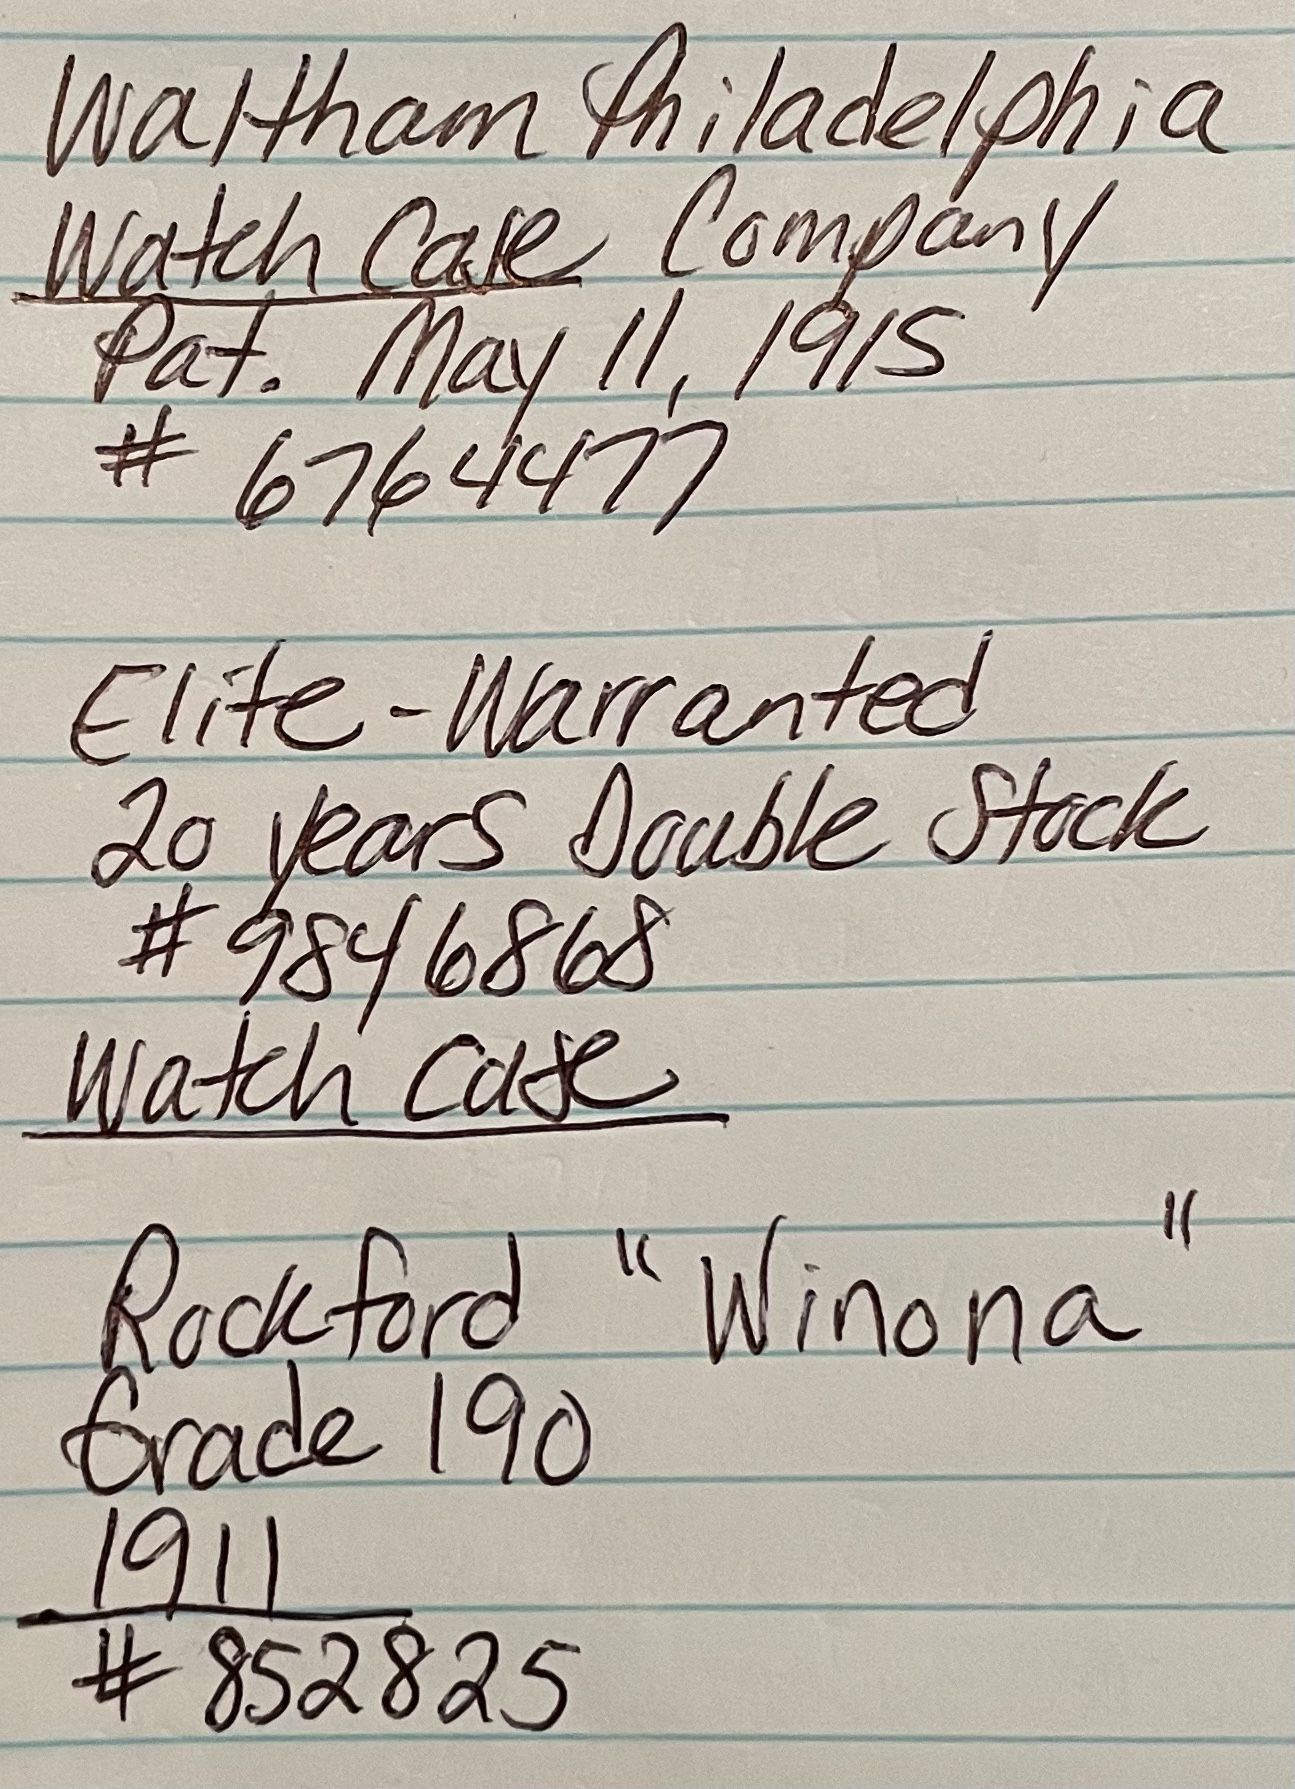 Waltham Philadelphia
Watch Case Company
Pat. May 11, 1915
# 6764477
Elite - Warranted
20 years Double Stock
# 9846868
Watch Case
Rockford "Winona"
Grade 190
1911
# 852825